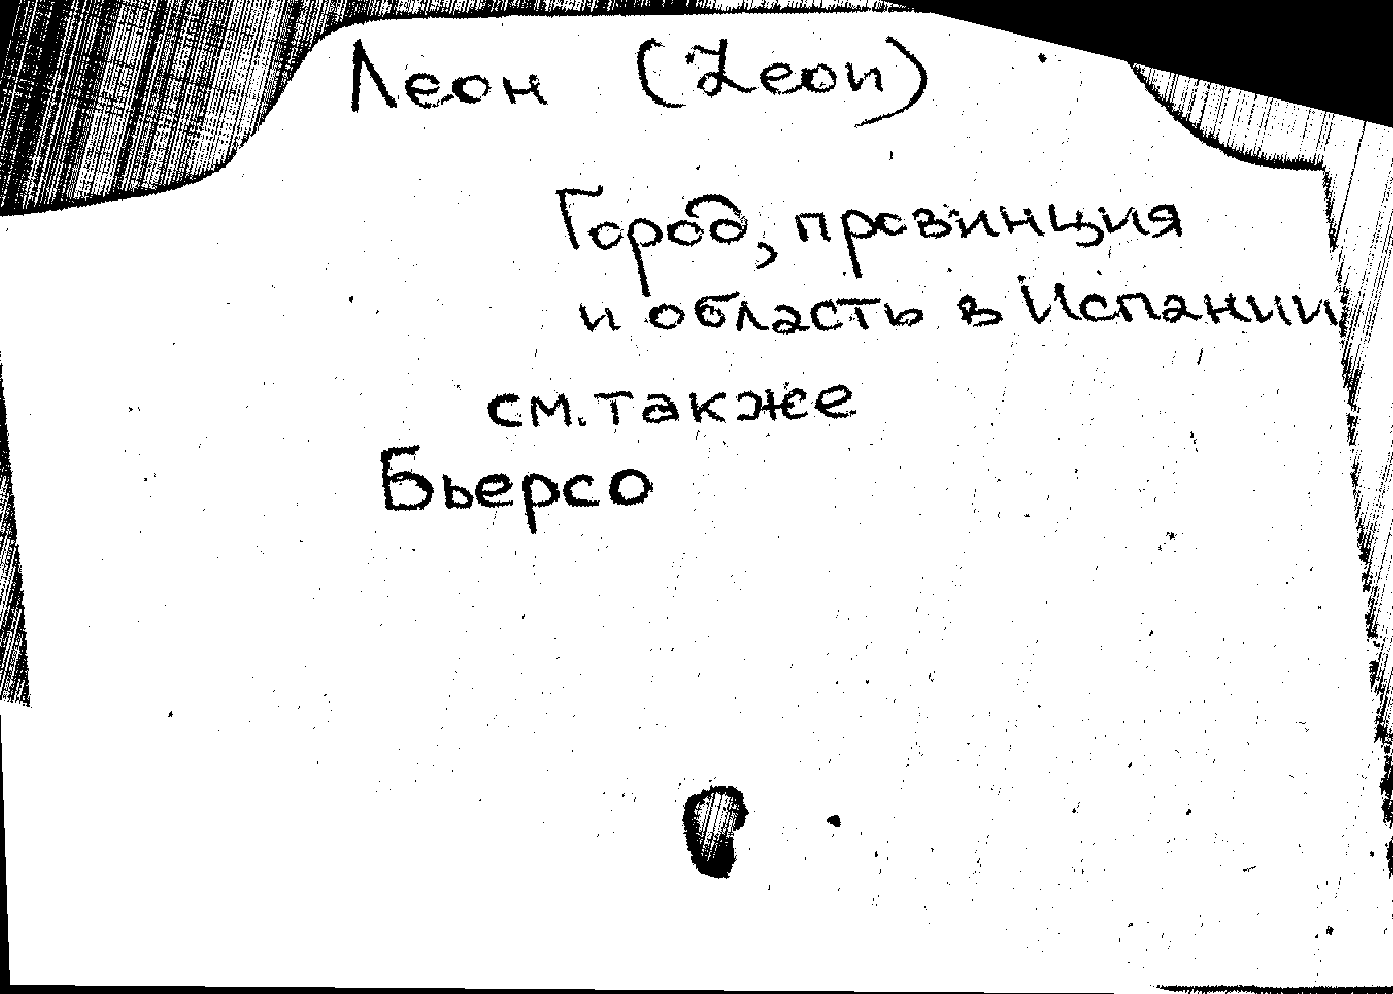 Леон (Leon)
Город, провинция
и область в Испании
см. также
Бьерсо